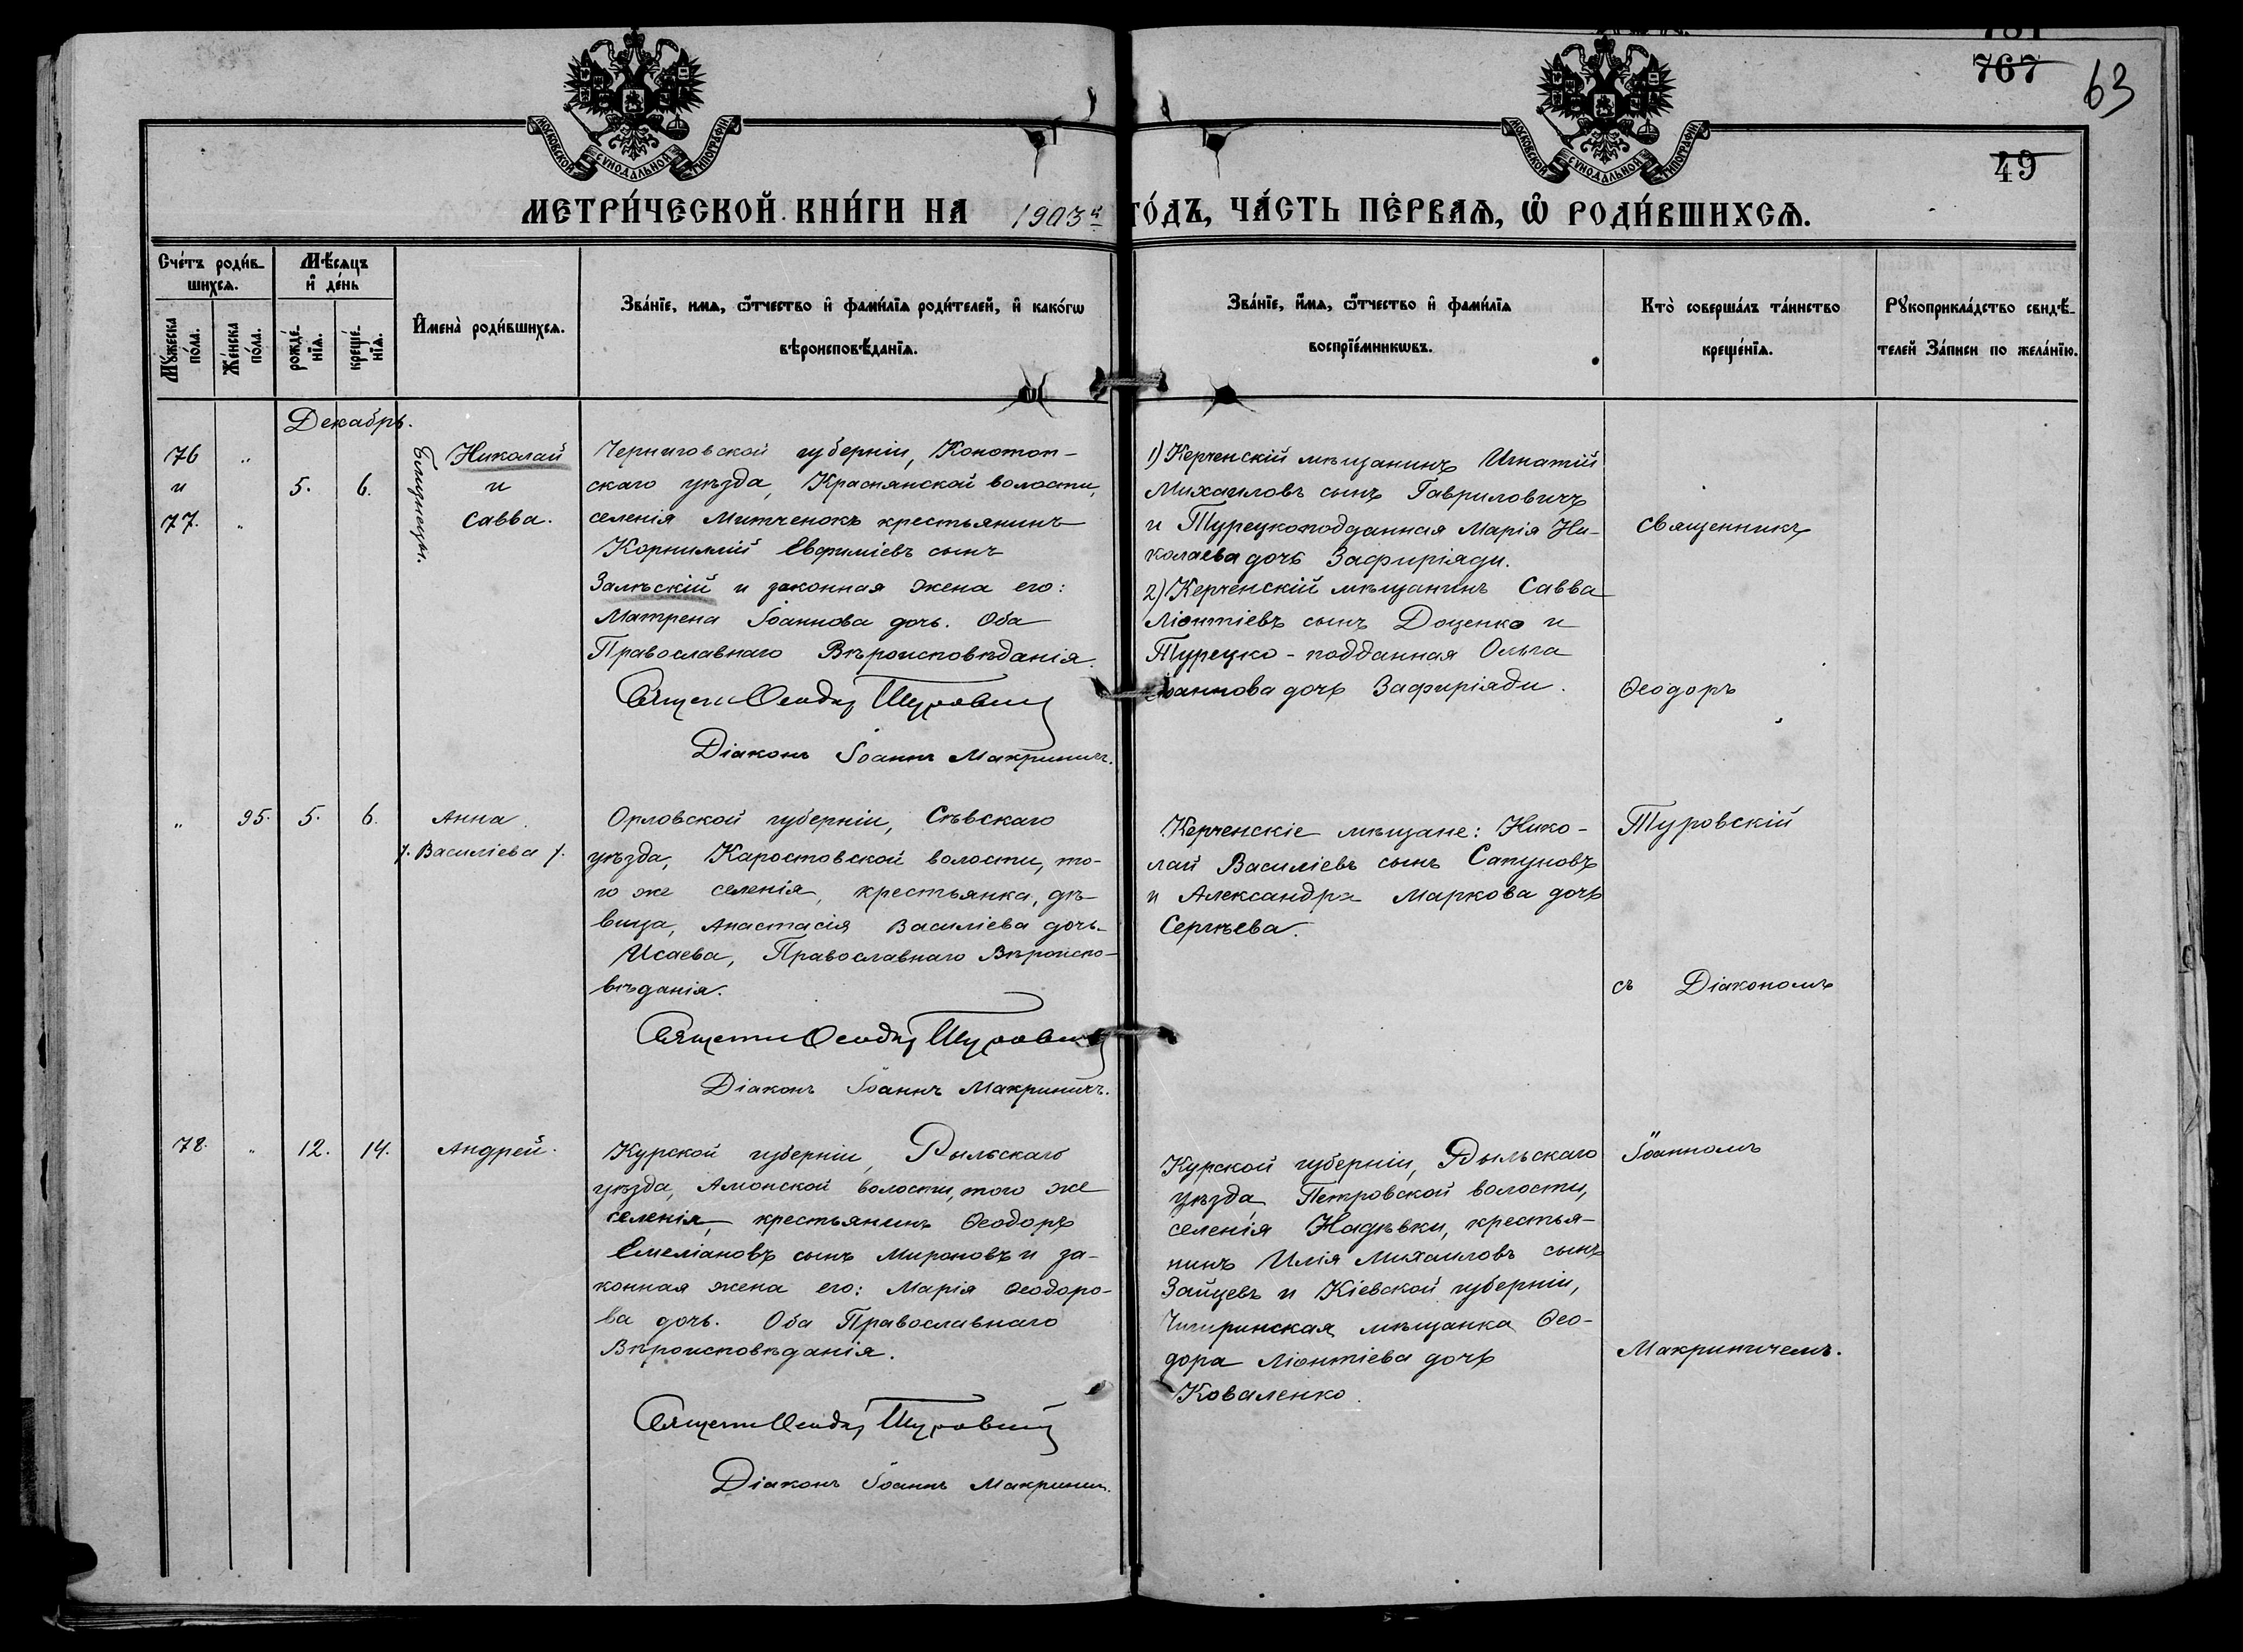 781
767
63
49
МОСКОВСКОЙ СУНОДАЛЬНОЙ ТИПОГРАФІИ
МОСКОВСКОЙ СУНОДАЛЬНОЙ ТИПОГРАФІИ
МЕТРИ́ЧЕСКОЙ КНИ́ГИ НА 1903й ГО́ДЪ, ЧА́СТЬ ПЕ́РВАѦ, Ѡ РОДИ́ВШИХСѦ.
Сче́тъ роди́в-
шихсѧ.
Мѣ́сѧцъ
и де́нь
Мꙋ́жеска
по́ла.
Же́нска
по́ла.
рожде́-
нїѧ.
креще́-
нїѧ.
Имена̀ роди́вшихсѧ.
Зва́нїе, имѧ, ѻ҆́тчество и фами́лїѧ роди́телей, и како́гѡ
вѣроисповѣ́данїѧ.
Зва́нїе, и́мѧ, ѻ҆́тчество и фами́лїѧ
воспрїе́мникѡвъ.
Кто̀ соверша́лъ та́инство
креще́нїѧ.
Рꙋкоприкла́дство свидѣ́-
телей За́писи по жела́нїю.
Декабрь.
76 "
и 5. 6.
77. "
Близнецы.
Николай
и
Савва.
Черниговской губерніи, Конотоп-
скаго уѣзда, Краснянской волости,
селенія Митченокъ крестьянинъ
Корнилій Евфиміевъ сынъ
Залѣскій и законная жена его:
Матрена Іоаннова дочь. Оба
Православнаго Вѣроисповѣданія.
Священ. Ѳеодор Туровскій
Діаконъ Іоаннъ Макриничъ.
1) Керченскій мѣщанинъ Игнатій
Михаиловъ сынъ Гавриловичъ
и Турецкоподданная Марія Ни-
колаева дочь Зафиріяди.
2) Керченскій мѣщанинъ Савва
Ліонтіевъ сынъ Доценко и
Турецко-подданная Ольга
Іоаннова дочь Зафиріяди.
Священникъ
Ѳеодоръ
" 95. 5. 6. Анна.
Василіева
Орловской губерніи, Сѣвскаго
уѣзда, Каростовской волости, то-
го же селенія, крестьянка, дѣ-
вица, Анастасія Василіева дочь
Исаева, Православнаго Вѣроиспо-
вѣданія.
Священн. Ѳеодор Туровскій
Діаконъ Іоаннъ Макриничъ.
Керченскіе мѣщане: Нико-
лай Василіевъ сынъ Сапуновъ
и Александра Маркова дочь
Сергѣева.
Туровскій
съ Діакономъ
78. " 12. 14. Андрей.
Курской губерніи, Рыльскаго
уѣзда, Амонской волости, того же
селенія, крестьянинъ Ѳеодоръ
Емеліановъ сынъ Мироновъ и за-
конная жена его: Марія Ѳеодоро-
ва дочь. Оба Православнаго
Вѣроисповѣданія.
Священн. Ѳеодор Туровскій
Діаконъ Іоаннъ Макринич.
Курской губерніи, Рыльскаго
уѣзда, Петровской волости,
селенія Надѣвки, крестья-
нинъ Илія Михаиловъ сынъ
Зайцевъ и Кіевской губерніи,
Чигиринская мѣщанка Ѳео-
дора Ліонтіева дочь
Коваленко.
Іоанномъ
Макриничемъ.